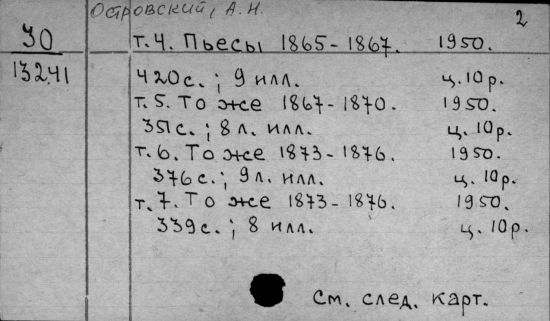 Островский, А.Н.
2
30
13241
т.4. Пьесы 1865-1867. 1950.
420с.; 9 илл. ц.10р.
т.5. То же 1867-1870. 1950.
351с.; 8 л. илл. ц.10р.
т.6. То же 1873-1876. 1950.
376с.; 9л. илл. ц.10р.
т.7. То же 1873-1876. 1950.
339с.; 8 илл. ц.10р.
См. след. карт.